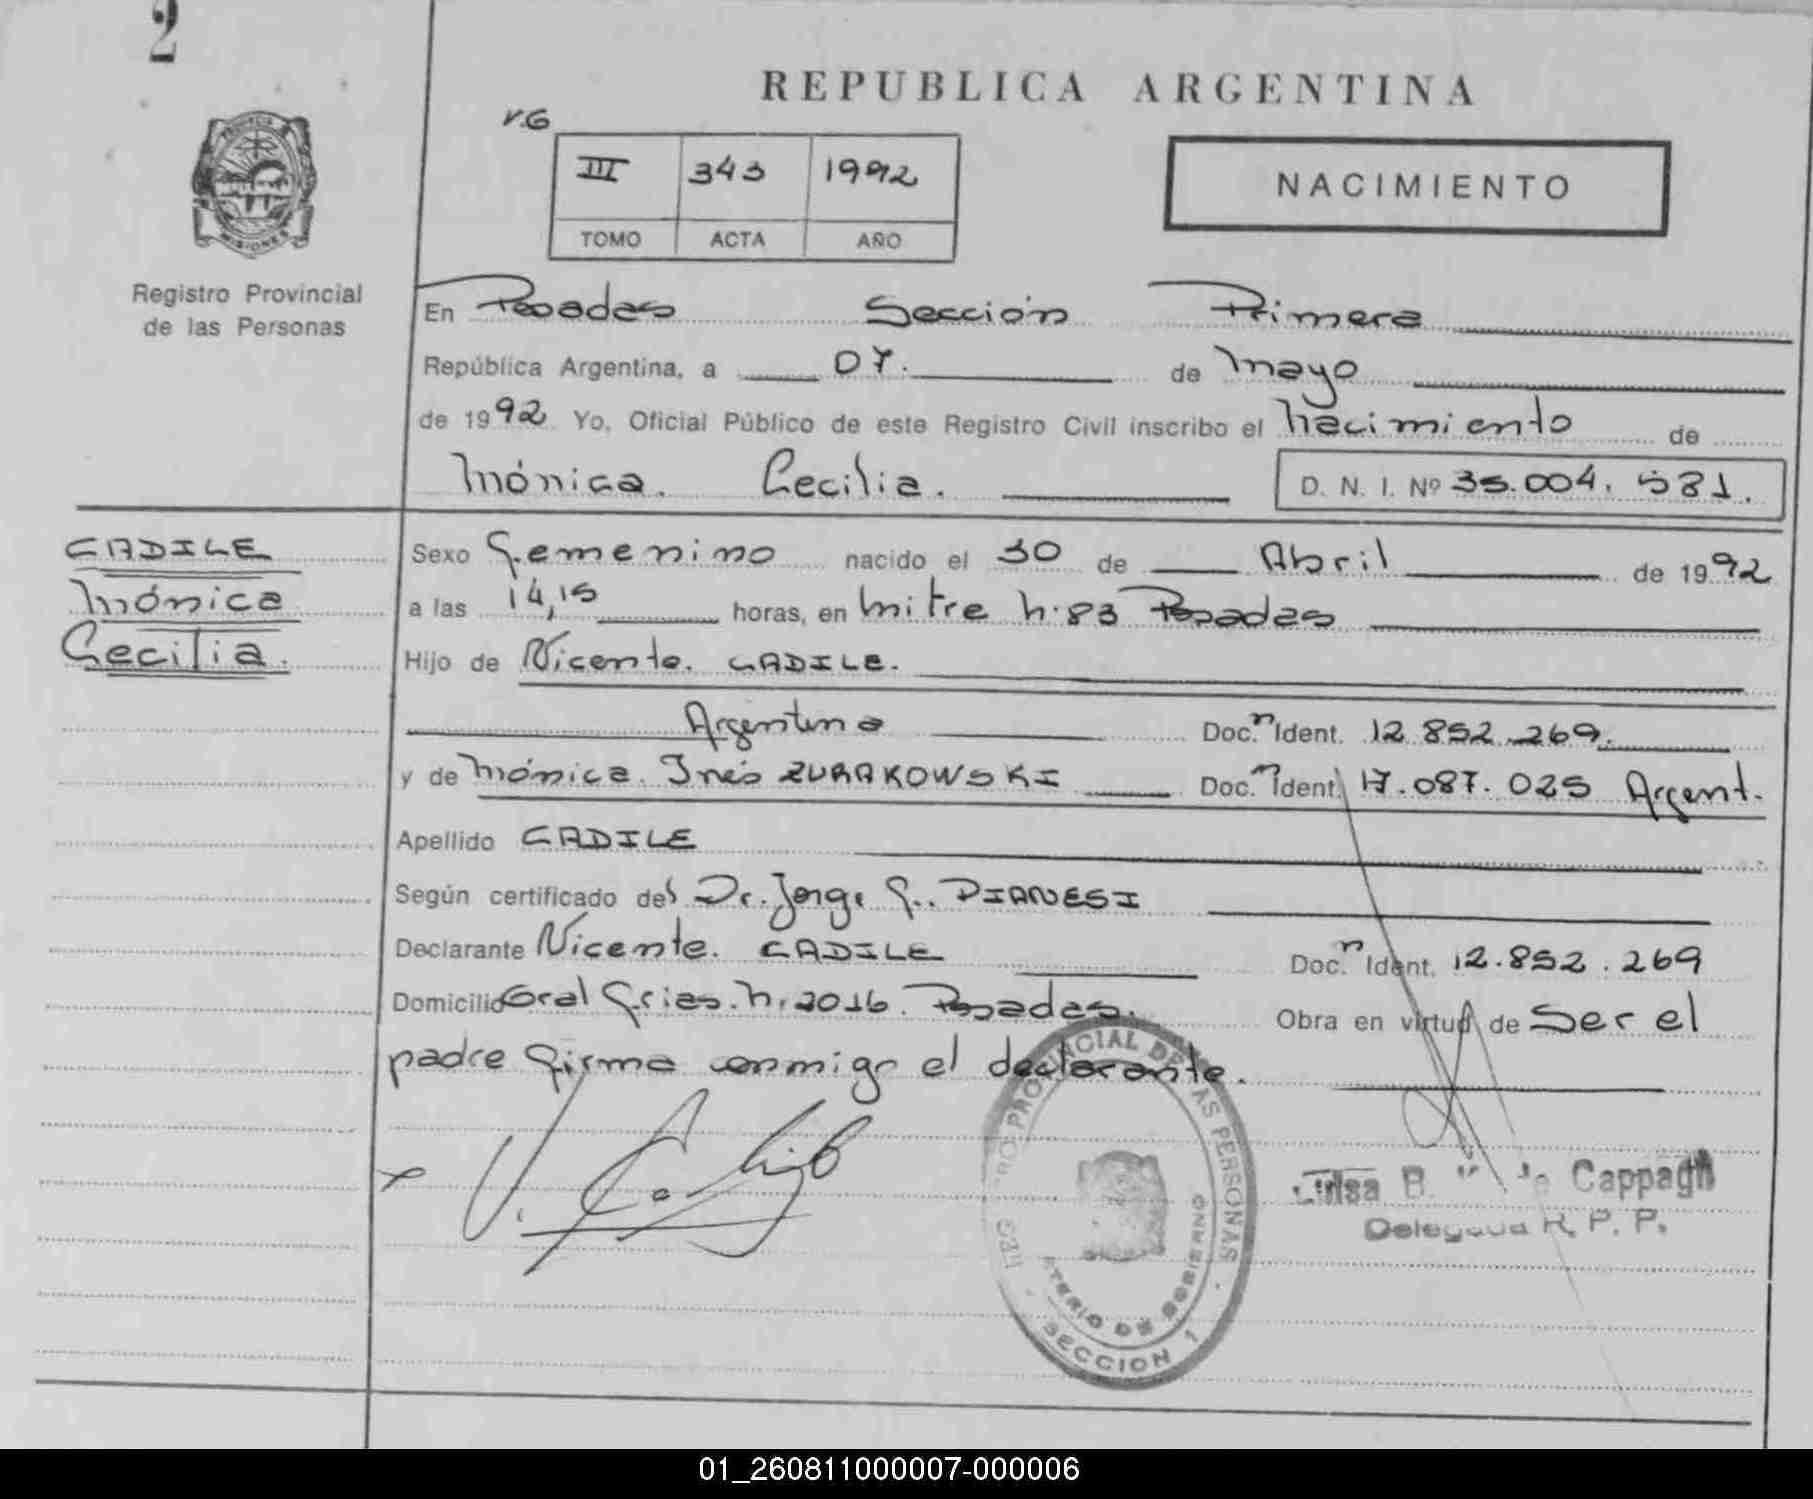 2
REPUBLICA ARGENTINA
V.G
III 343 1992
TOMO ACTA AÑO
NACIMIENTO
PROVINCIA
MISIONES
Registro Provincial
de las Personas
En Posadas Sección Primera
República Argentina, a 07. de Mayo
de 1992 Yo, Oficial Público de este Registro Civil inscribo el Nacimiento de
Mónica. Cecilia. D. N. I. Nº 35.004.581.
CADILE
Mónica
Cecilia.
Sexo Femenino nacido el 30 de Abril de 1992
a las 14,15 horas, en Mitre N.83 Posadas
Hijo de Vicente. CADILE.
Argentino Doc. Ident. 12.852.269.
y de Mónica. Inés ZURAKOWSKI Doc. Ident. 17.087.025 Argent.
Apellido CADILE
Según certificado del Dr. Jorge F.. DIANESI
Declarante Vicente. CADILE Doc. Ident. 12.852.269
Domicilio Gral Frias. N. 2016. Posadas. Obra en virtud de Ser el
padre firma conmigo el declarante.
PROVINCIAL DE LAS PERSONAS
DE GOBIERNO
SECCION 1
B. Cappagli
Delegada R. P. P.
01_260811000007-000006